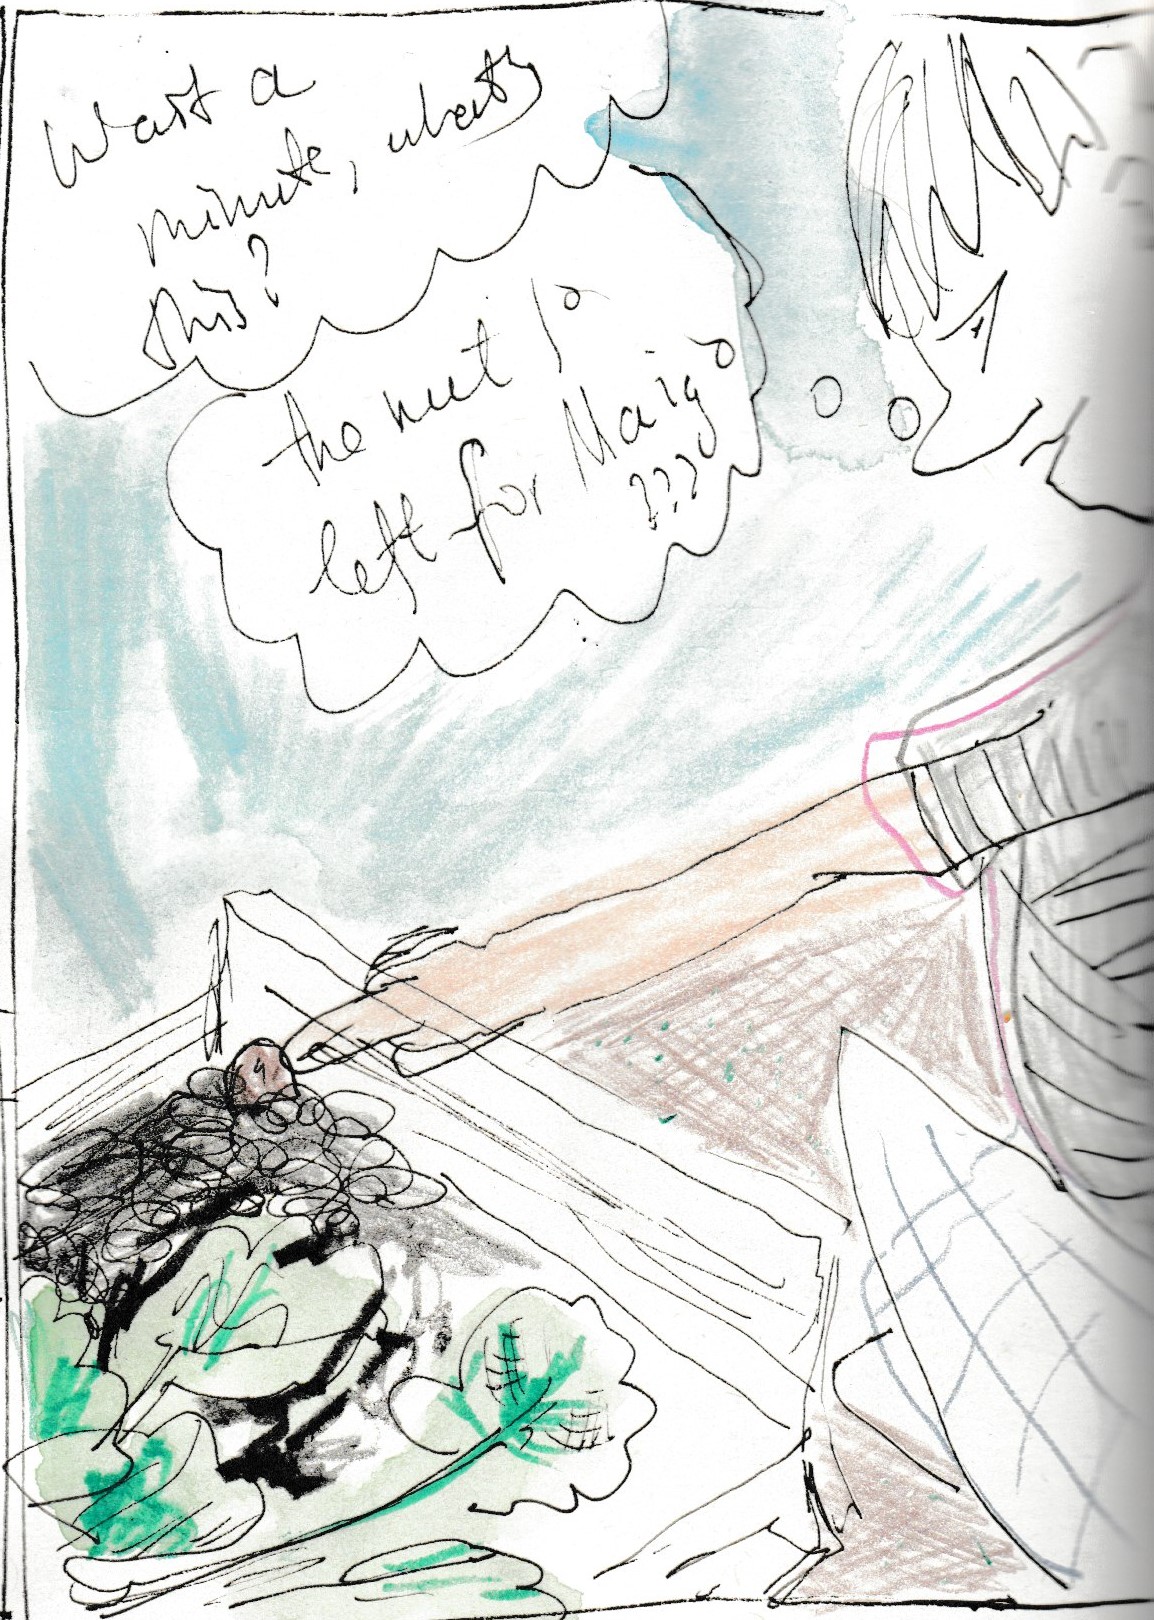 Wait a
minute, what's
this?
the nut I
left for Maigo
???